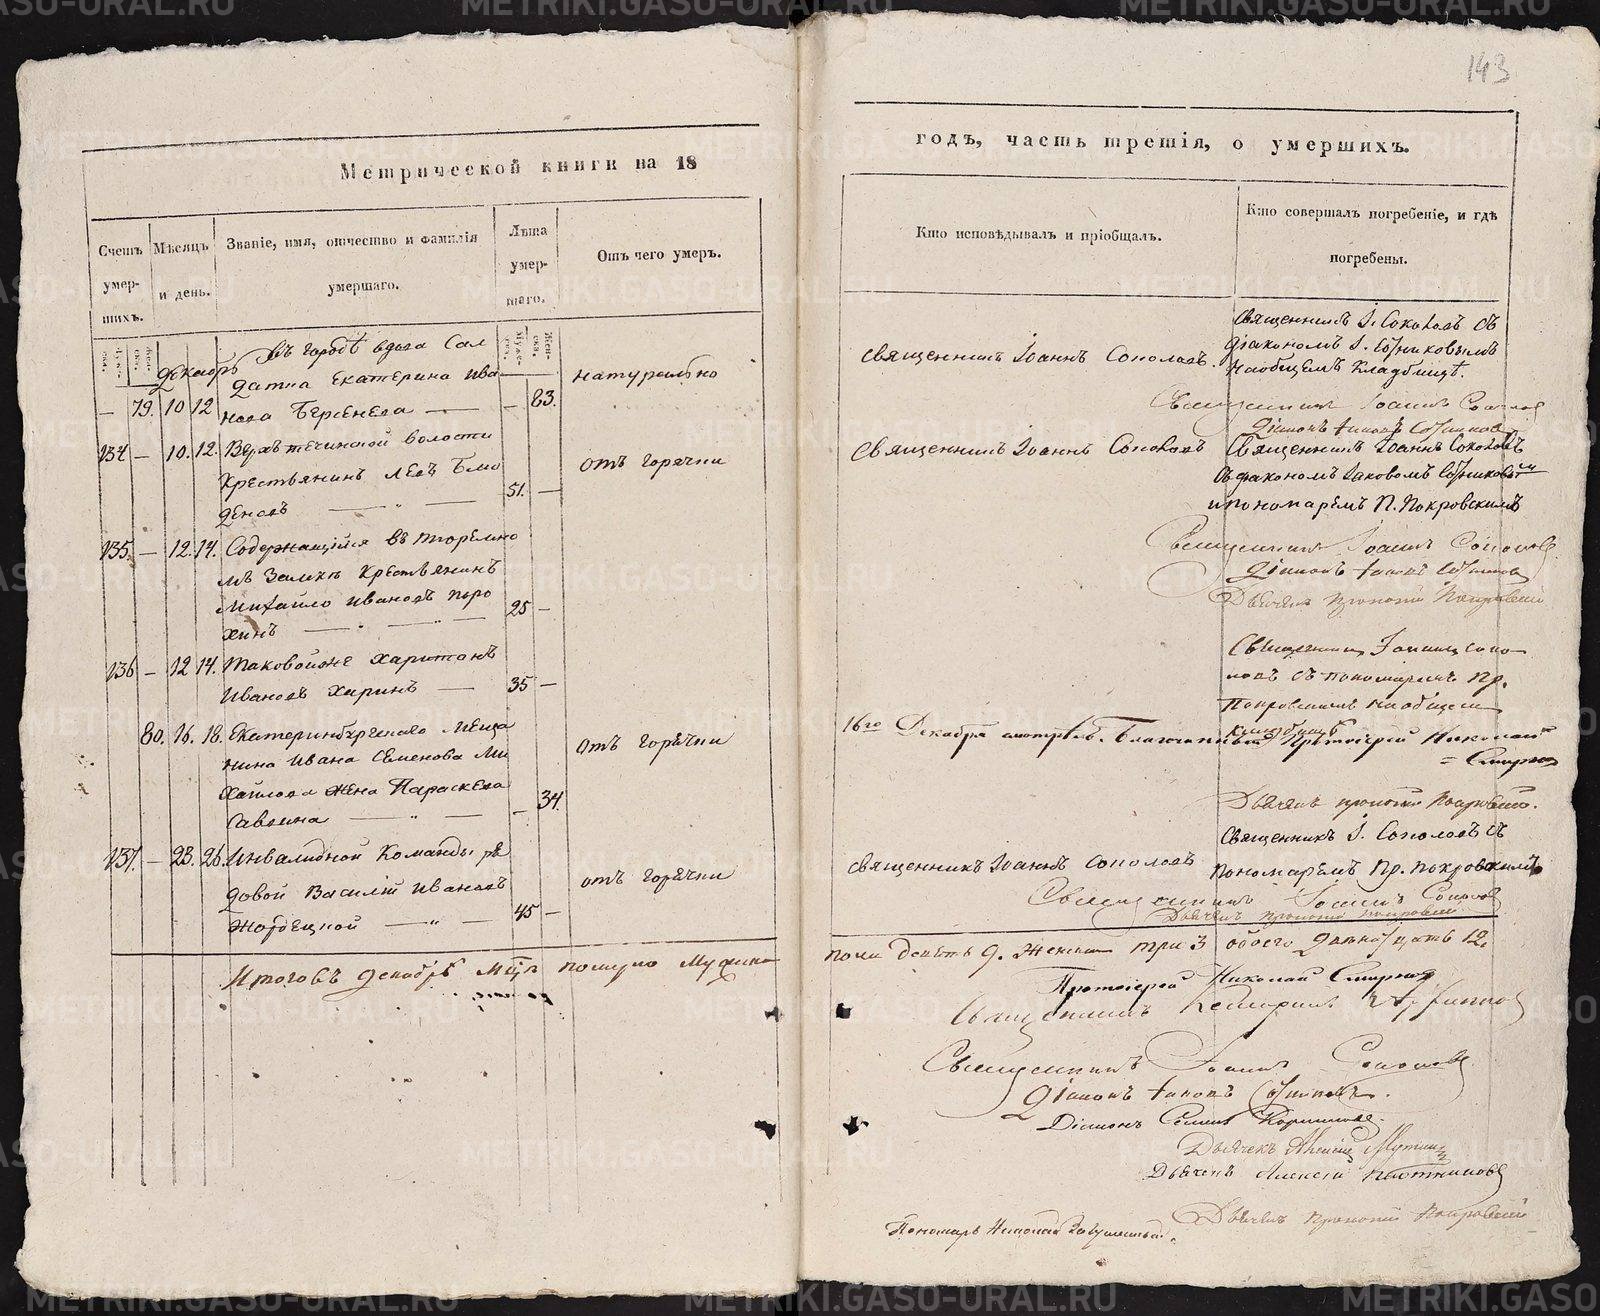 143
Метрической книги на 18
годъ, часть третія, о умершихъ.
Счетъ умер-шихъ.
Мѣсяцъ и день.
Званіе, имя, отчество и фамилія умершаго.
Лѣта умер-шаго.
Отъ чего умеръ.
Кто исповѣдывалъ и пріобщалъ.
Кто совершалъ погребеніе, и гдѣ погребены.
Декабрь
въ городѣ вдова Сал
датка Екатерина Ива
— 79. 10 12 нова Берсенева — — 83.
натурально
Священникъ Іоаннъ Соколовъ.
Священникъ І. Соколовъ съ
діакономъ І. Сотниковымъ
на общемъ кладбищѣ.
Священникъ Іоаннъ Соколовъ
Діаконъ Іаковъ Сотниковъ
134 — 10. 12. Верхтеченской волости
Крестьянинъ Левъ
51. —
отъ горячки
Священникъ Іоаннъ Соколовъ
Священникъ Іоаннъ Соколовъ
съ діакономъ Іаковомъ Сотниковымъ
и пономаремъ П. Покровскимъ
Священникъ Іоаннъ Соколовъ
Діаконъ Іаковъ Сотниковъ
Дьячекъ Прокопій Покровскій
135. — 12. 14. Содержащійся въ тюремно
мъ Замкѣ Крестьянинъ
Михайло Ивановъ
хинъ — 25 —
136 — 12 14. таковойже Харитонъ
Ивановъ Харинъ — 35 —
Священникъ Іоаннъ Соко
ловъ съ пономаремъ Пр.
Покровскимъ на общемъ
кладбищѣ
80. 16. 18. Екатеринбургскаго Меща
нина Ивана Семенова Ми
хайлова жена Параскева
Саввина — — 34.
отъ горячки
16го Декабря Благочинный Протоіерей Николай
Смирнов
Дьячекъ Прокопій Покровскій.
137. — 23. 26. Инвалидной Команды ря
довой Василій Ивановъ
45 —
отъ горячки
Священникъ Іоаннъ Соколовъ
Священникъ І. Соколовъ съ
пономаремъ Пр. Покровскимъ
Священникъ Іоаннъ Соколовъ
Дьячекъ Прокопій Покровскій
Итого въ декабрѣ м-цѣ померло Мужеска
пола девять 9. Женска три 3 обоего двенатцать 12.
Протоіерей Николай Смирнов
Священникъ
Священникъ Іоаннъ Соколовъ
Діаконъ Іаковъ Сотниковъ.
Діаконъ Семенъ
Дьячекъ Алексѣй
Дьячекъ Алексѣй Плотниковъ
Дьячекъ Прокопій Покровскій
Пономарь Николай
METRIKI.GASO-URAL.RU